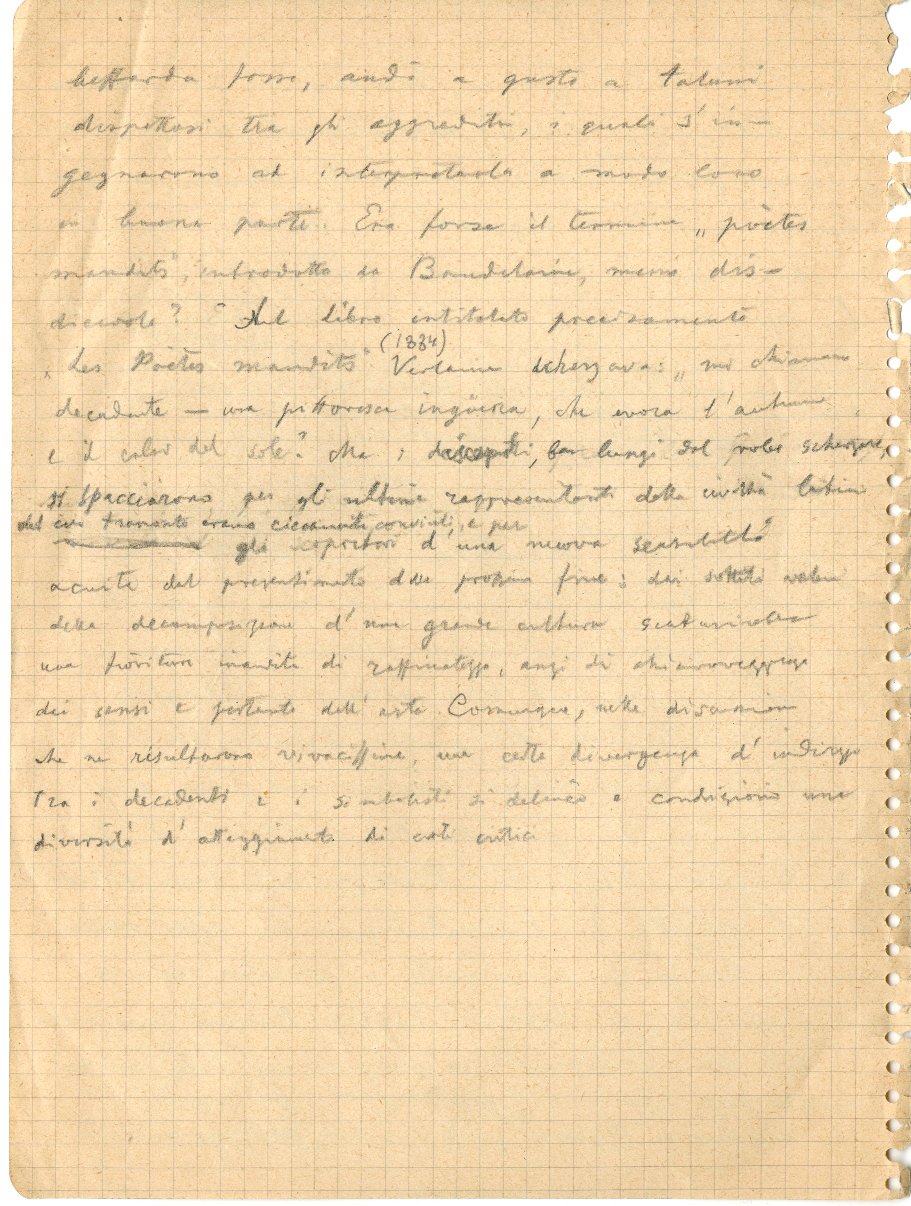 beffarda forse, andò a gusto a taluni
dispettosi tra gli aggrediti, i quali s'in-
gegnarono ad interpretarla a modo loro
in buona parte. Era forse il termine „poètes
maudits", introdotto da Baudelaire, meno dis-
dicevole? Nel libro intitolato precisamente
„Les Poètes maudits" (1884) Verlaine scherzava: „mi chiamano
decadente — una pittoresca ingiuria, che evoca l'autunno
e il calar del sole". Ma i discepoli, ben lungi dal voler scherzare,
si spacciarono per gli ultimi rappresentanti della civiltà latina
del cui tramonto erano ciecamente convinti, e per
gli scopritori d'una nuova sensibilità
acuita dal presentimento della prossima fine: dai sottili veleni
della decomposizione d'una grande cultura scaturirebbe
una fioritura inaudita di raffinatezza, anzi di chiaroveggenza
dei sensi e pertanto dell'arte. Comunque, nelle discussioni
che ne risultarono vivacissime, una certa divergenza d'indirizzo
tra i decadenti e i simbolisti si delineò e condizionò una
diversità d'atteggiamento di certi critici